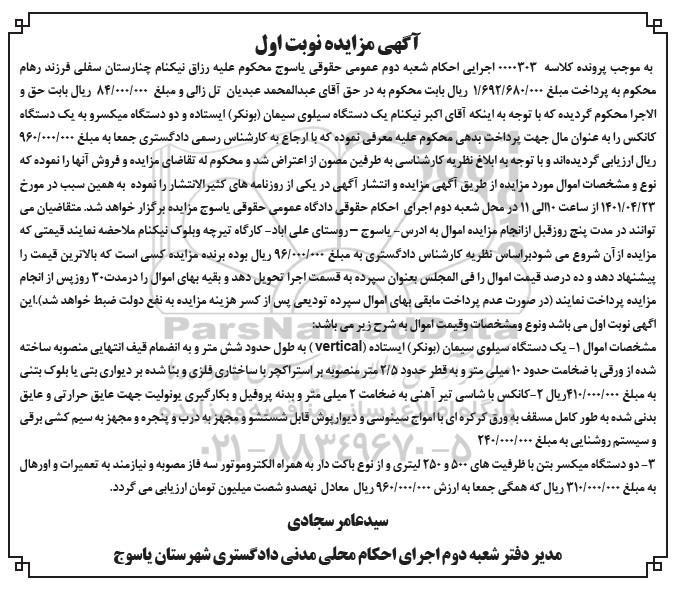 آگهی مزایده نوبت اول
به موجب پرونده کلاسه ۰۰۰۰۳۰۳ اجرایی احکام شعبه دوم عمومی حقوقی یاسوج محکوم علیه رزاق نیکنام چنارستان سفلی فرزند رهام
محکوم به پرداخت مبلغ ۱/۶۹۲/۶۸۰/۰۰۰ ریال بابت محکوم به در حق آقای عبدالمحمد عبدیان تل زالی و مبلغ ۸۴/۰۰۰/۰۰۰ ریال بابت حق و
الاجرا محکوم گردیده که با توجه به اینکه آقای اکبر نیکنام یک دستگاه سیلوی سیمان (بونکر) ایستاده و دو دستگاه میکسرو به یک دستگاه
کانکس را به عنوان مال جهت پرداخت بدهی محکوم علیه معرفی نموده که با ارجاع به کارشناس رسمی دادگستری جمعا به مبلغ ۹۶۰/۰۰۰/۰۰۰
ریال ارزیابی گردیده‌اند و با توجه به ابلاغ نظریه کارشناسی به طرفین مصون از اعتراض شد و محکوم له تقاضای مزایده و فروش آنها را نموده که
نوع و مشخصات اموال مورد مزایده از طریق آگهی مزایده و انتشار آگهی در یکی از روزنامه های کثیرالانتشار را نموده به همین سبب در مورخ
۱۴۰۱/۰۴/۲۳ از ساعت ۱۰الی ۱۱ در محل شعبه دوم اجرای احکام حقوقی دادگاه عمومی حقوقی یاسوج مزایده برگزار خواهد شد. متقاضیان می
توانند در مدت پنج روزقبل ازانجام مزایده اموال به ادرس- یاسوج – روستای علی اباد- کارگاه تیرچه وبلوک نیکنام ملاحضه نمایند قیمتی که
مزایده ازآن شروع می شودبراساس نظریه کارشناس دادگستری به مبلغ ۹۶/۰۰۰/۰۰۰ ریال بوده برنده مزایده کسی است که بالاترین قیمت را
پیشنهاد دهد و ده درصد قیمت اموال را فی المجلس بعنوان سپرده به قسمت اجرا تحویل دهد و بقیه بهای اموال را درمدت۳۰ روزپس از انجام
مزایده پرداخت نمایند (در صورت عدم پرداخت مابقی بهای اموال سپرده تودیعی پس از کسر هزینه مزایده به نفع دولت ضبط خواهد شد).این
اگهی نوبت اول می باشد ونوع ومشخصات وقیمت اموال به شرح زیر می باشد:
مشخصات اموال ۱- یک دستگاه سیلوی سیمان (بونکر) ایستاده (vertical ) به طول حدود شش متر و به انضمام قیف انتهایی منصوبه ساخته
شده از ورقی با ضخامت حدود ۱۰ میلی متر و به قطر حدود ۲/۵ متر منصوبه بر استراکچر با ساختاری فلزی و بنا شده بر دیواری بتی یا بلوک بتنی
به مبلغ ۴۱۰/۰۰۰/۰۰۰ریال ۲-کانکس با شاسی تیر آهنی به ضخامت ۲ میلی متر و بدنه پروفیل و بکارگیری یونولیت جهت عایق حرارتی و عایق
بدنی شده به طور کامل مسقف به ورق کرکره ای با امواج سینوسی و دیوارپوش قابل شستشو و مجهز به درب و پنجره و مجهز به سیم کشی برقی
و سیستم روشنایی به مبلغ ۲۴۰/۰۰۰/۰۰۰
۳- دو دستگاه میکسر بتن با ظرفیت های ۵۰۰ و ۲۵۰ لیتری و از نوع باکت دار به همراه الکتروموتور سه فاز مصوبه و نیازمند به تعمیرات و اورهال
به مبلغ ۳۱۰/۰۰۰/۰۰۰ ریال که همگی جمعا به ارزش ۹۶۰/۰۰۰/۰۰۰ ریال معادل نهصدو شصت میلیون تومان ارزیابی می گردد.
سیدعامر سجادی
مدیر دفتر شعبه دوم اجرای احکام محلی مدنی دادگستری شهرستان یاسوج
ParsNamadData
پایگاه اطلاع رسانی مناقصه و مزایده
۰۲۱-۸۸۳۴۹۶۷۰-۵